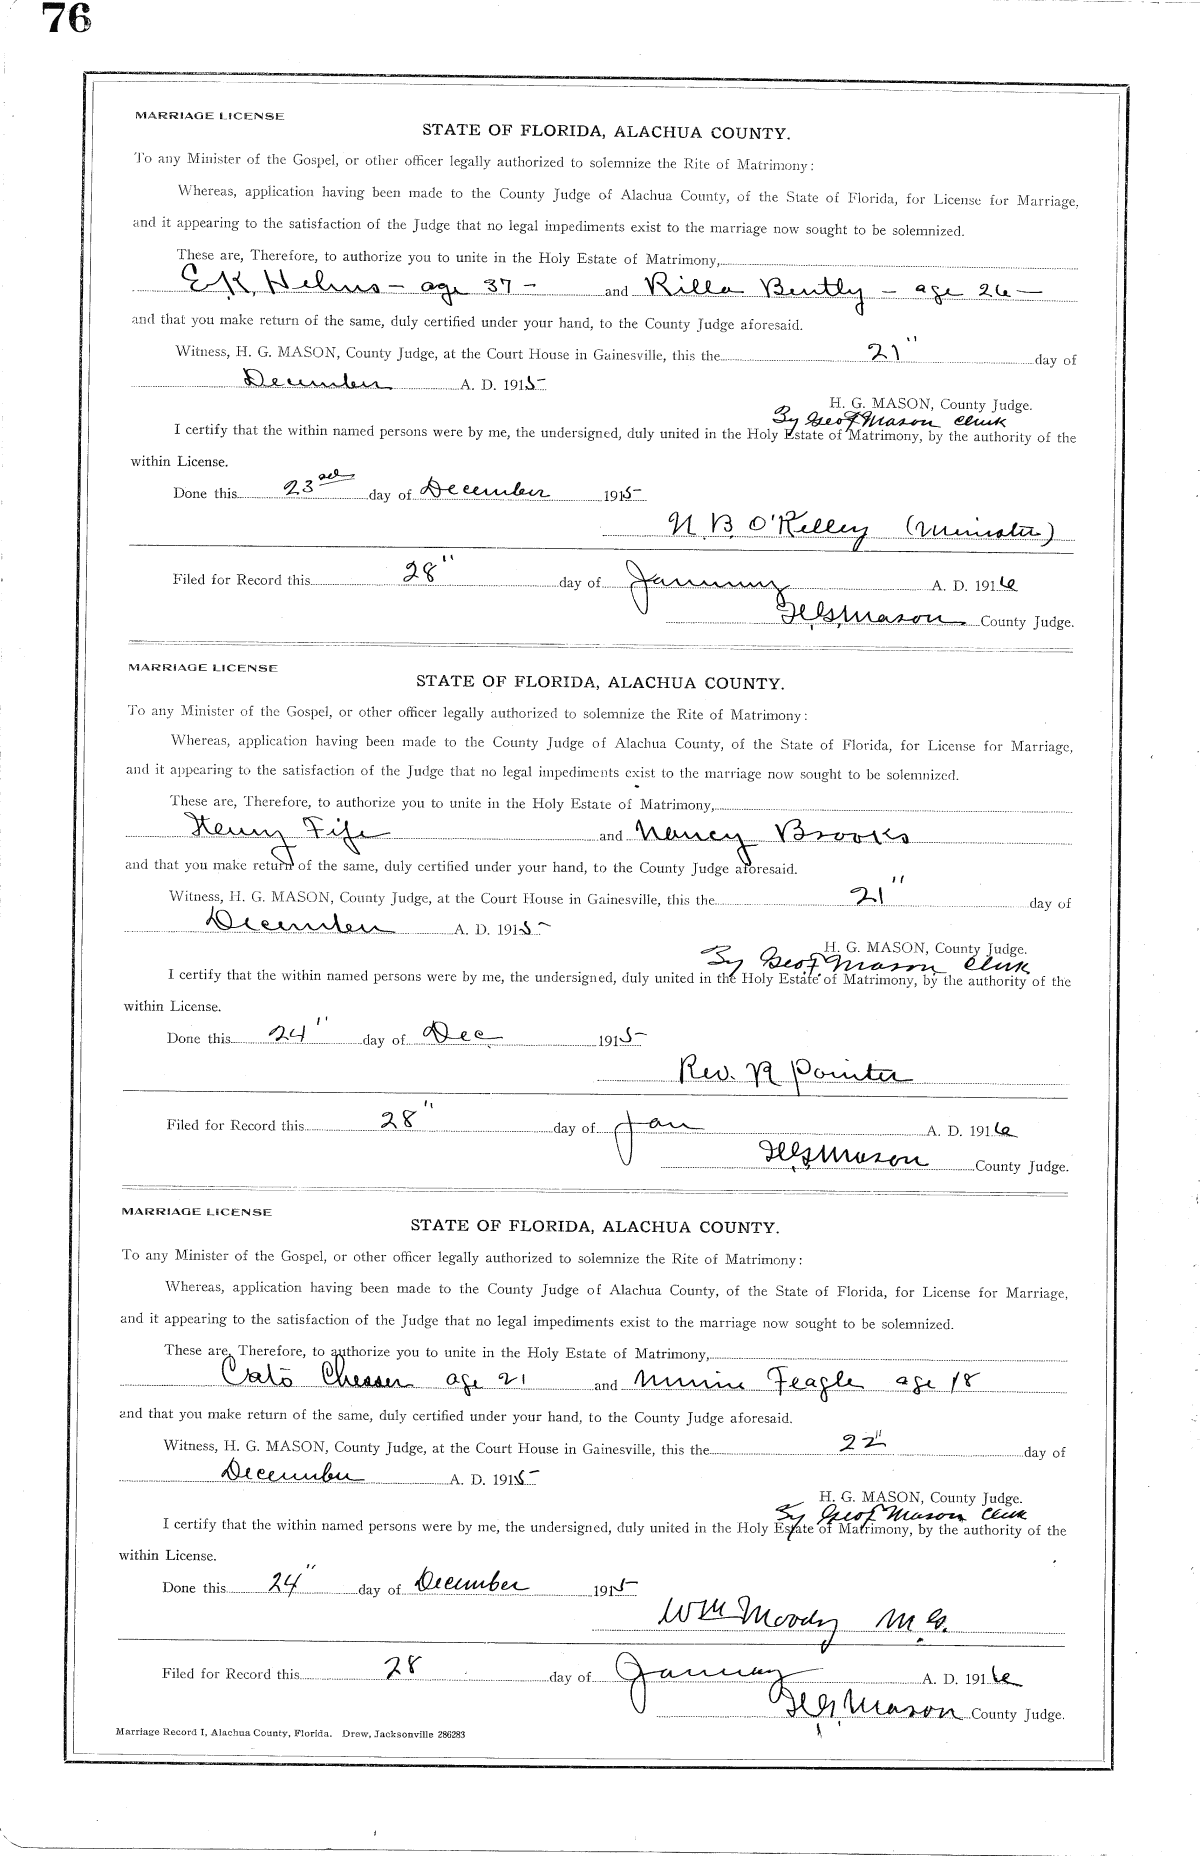 76
MARRIAGE LICENSE
STATE OF FLORIDA, ALACHUA COUNTY.
To any Minister of the Gospel, or other officer legally authorized to solemnize the Rite of Matrimony:
Whereas, application having been made to the County Judge of Alachua County, of the State of Florida, for License for Marriage,
and it appearing to the satisfaction of the Judge that no legal impediments exist to the marriage now sought to be solemnized.
These are, Therefore, to authorize you to unite in the Holy Estate of Matrimony,
E.K. Helms - age 37 - and Rilla Bently - age 26 -
and that you make return of the same, duly certified under your hand, to the County Judge aforesaid.
Witness, H. G. MASON, County Judge, at the Court House in Gainesville, this the 21" day of
December A. D. 1915
H. G. MASON, County Judge.
By Geo J Mason Clerk
I certify that the within named persons were by me, the undersigned, duly united in the Holy Estate of Matrimony, by the authority of the
within License.
Done this 23rd day of December 1915
N. B. O'Kelley (Minister)
Filed for Record this 28" day of January A. D. 1916
H. G. Mason County Judge.
MARRIAGE LICENSE
STATE OF FLORIDA, ALACHUA COUNTY.
To any Minister of the Gospel, or other officer legally authorized to solemnize the Rite of Matrimony:
Whereas, application having been made to the County Judge of Alachua County, of the State of Florida, for License for Marriage,
and it appearing to the satisfaction of the Judge that no legal impediments exist to the marriage now sought to be solemnized.
These are, Therefore, to authorize you to unite in the Holy Estate of Matrimony,
Henry Fife and Nancy Brooks
and that you make return of the same, duly certified under your hand, to the County Judge aforesaid.
Witness, H. G. MASON, County Judge, at the Court House in Gainesville, this the 21" day of
December A. D. 1915
H. G. MASON, County Judge.
By Geo. J. Mason Clerk
I certify that the within named persons were by me, the undersigned, duly united in the Holy Estate of Matrimony, by the authority of the
within License.
Done this 24" day of Dec 1915
Rev. R Pointer
Filed for Record this 28" day of Jan A. D. 1916
H. G. Mason County Judge.
MARRIAGE LICENSE
STATE OF FLORIDA, ALACHUA COUNTY.
To any Minister of the Gospel, or other officer legally authorized to solemnize the Rite of Matrimony:
Whereas, application having been made to the County Judge of Alachua County, of the State of Florida, for License for Marriage,
and it appearing to the satisfaction of the Judge that no legal impediments exist to the marriage now sought to be solemnized.
These are, Therefore, to authorize you to unite in the Holy Estate of Matrimony,
Cato Chesser age 21 and Minnie Feagle age 18
and that you make return of the same, duly certified under your hand, to the County Judge aforesaid.
Witness, H. G. MASON, County Judge, at the Court House in Gainesville, this the 22" day of
December A. D. 1915
H. G. MASON, County Judge.
By Geo J Mason Clerk
I certify that the within named persons were by me, the undersigned, duly united in the Holy Estate of Matrimony, by the authority of the
within License.
Done this 24" day of December 1915
Wm Moody M. G.
Filed for Record this 28 day of January A. D. 1916
H. G. Mason County Judge.
Marriage Record I, Alachua County, Florida. Drew, Jacksonville 286283